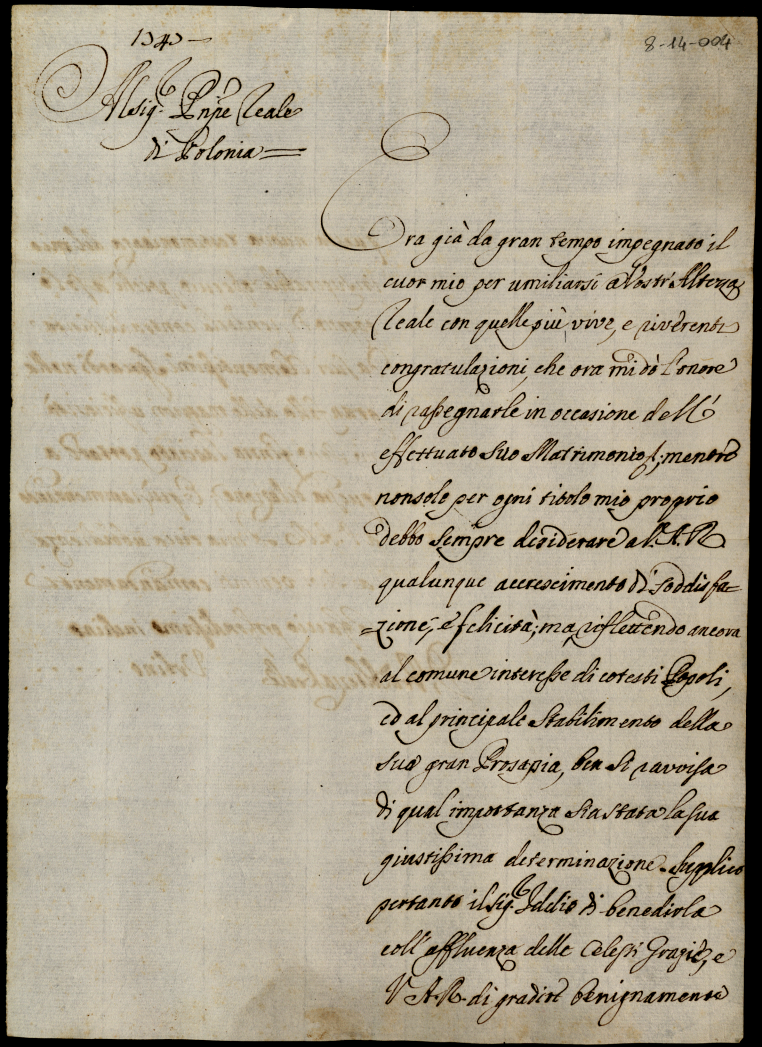 8-14-004
Al Sig.r Pnpe Reale
di Polonia
Era già da gran tempo impegnato il
cuor mio per umiliarsi a Vostr' Altezza
Reale con quelle più vive, e riverenti
congratulazioni, che ora mi dò l'onore
di rassegnarle in occasione dell'
effettuato suo Matrimonio; mentre
non solo per ogni titolo mio proprio
debbo sempre desiderare a V. A. R.
qualunque accrescimento di soddisfa=
=zione, e felicità; ma riflettendo ancora
al comune interesse di cotesti Popoli,
ed al principale stabilimento della
sua gran Prosapia, ben si ravvisa
di qual importanza sia stata la sua
giustissima determinazione. Supplico
pertanto il Sig.r Iddio di benedirla
coll' affluenza delle Celesti Grazie, e
V. A. R. di gradire benignamente